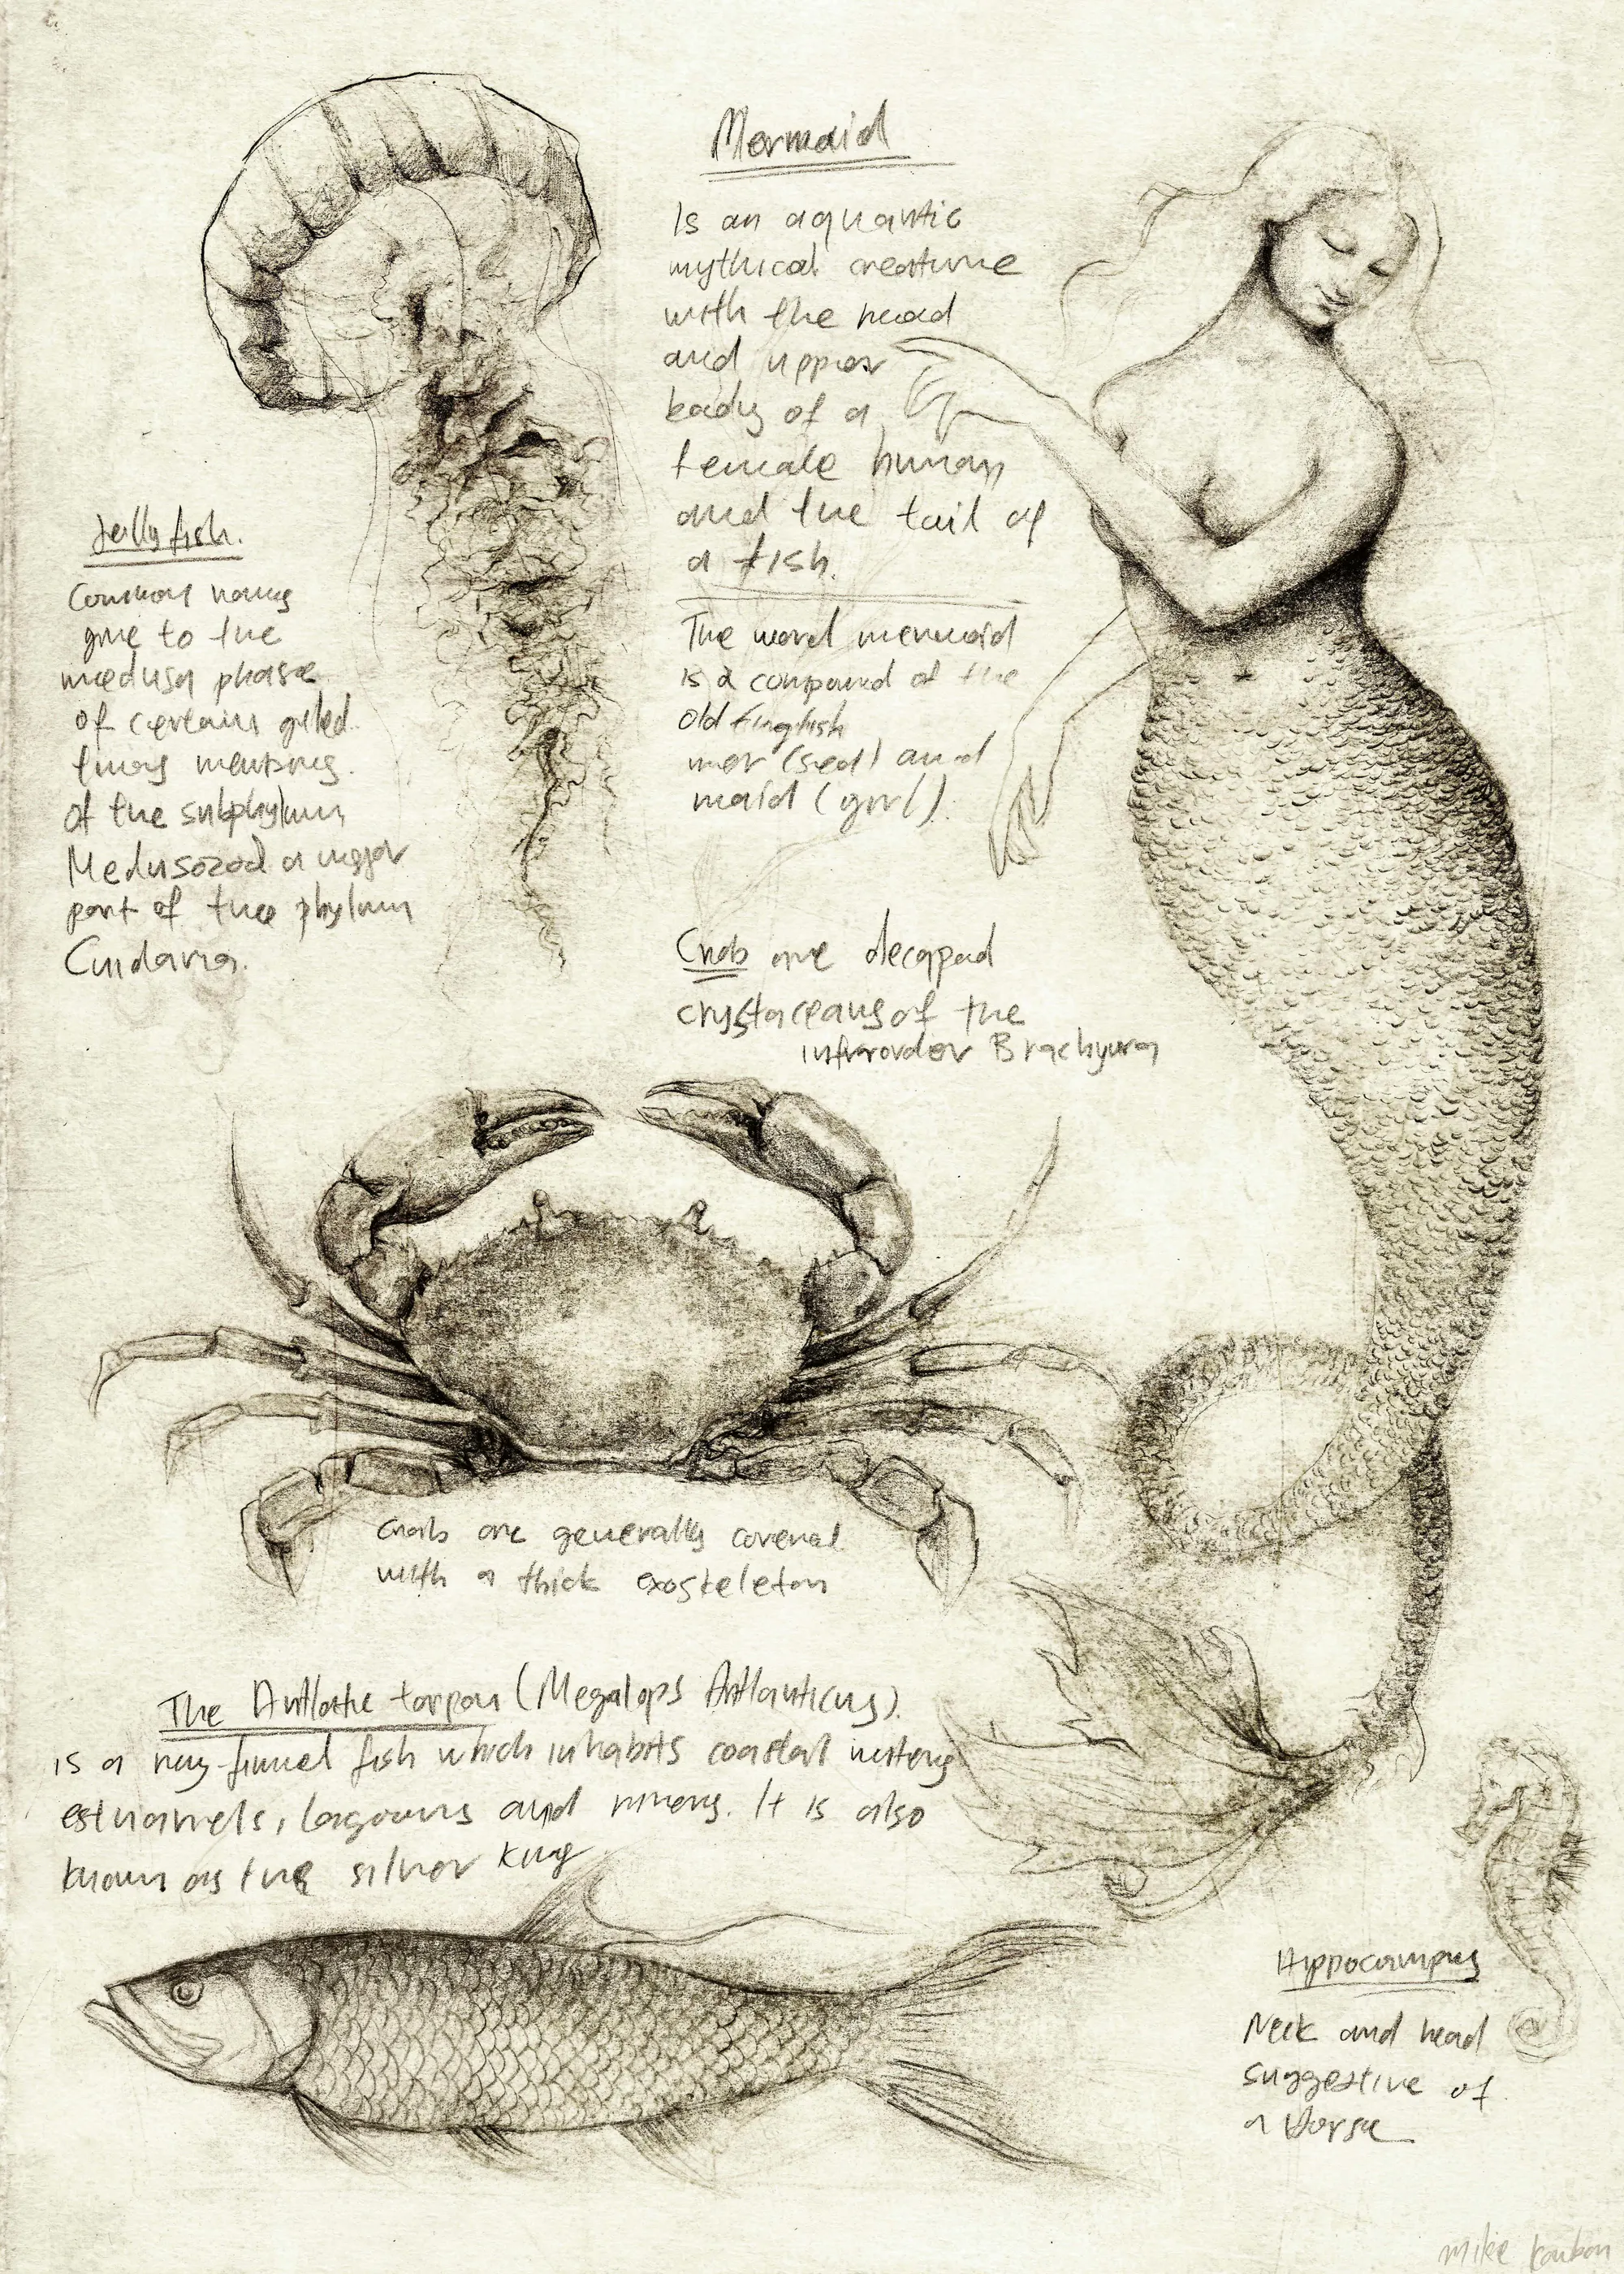 Mermaid
Is an aquantic
mythical creature
with the head
and upper
body of a
female human
and the tail of
a fish.
The word mermaid
is a compound of the
old English
mer (sea) and
maid (girl).
Jelly fish.
Common names
give to the
medusa phase
of certain
of the subphylum
Medusozoa a major
part of the phylum
Cnidaria.
Crabs are decapod
crystaceans of the
infraorder Brachyura
Crabs are generally covered
with a thick exoskeleton
The Antlatic tarpon (Megalops Antlanticus).
is a ray-finned fish which inhabits coastal waters
estuariets, lagoons and rivers. It is also
known as the silver king
Hippocampus
Neck and head
suggestive of
a horse
mike